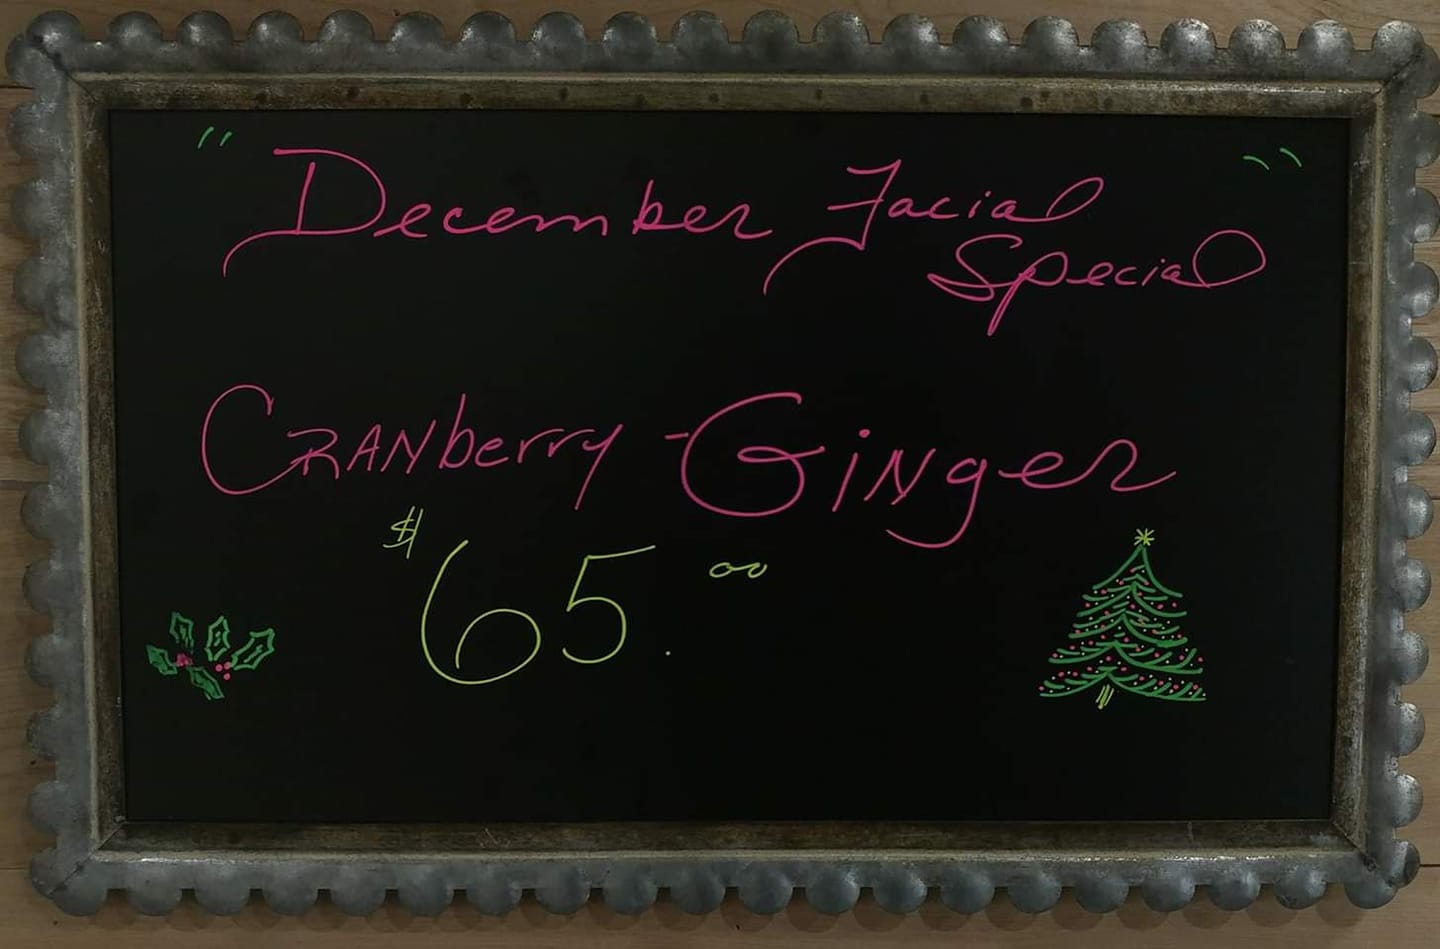 "December Facial
Special"
CRANberry-GiNger
$65.00